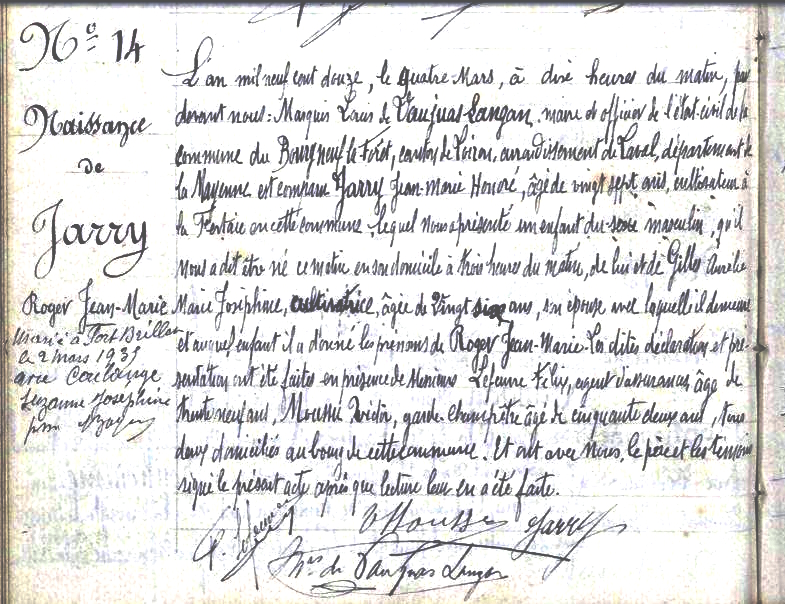 No 14
Naissance
de
Jarry
Roger Jean-Marie
Marié à Port Brillet
le 2 mars 1935
avec Coulange
Suzanne Joséphine
L'an mil neuf cent douze, le quatre Mars, à dix heures du matin, par
devant nous: Marquis Louis de Vaujuas-Langan, maire et officier de l'état-civil de la
commune du Bourgneuf-la-Forêt, canton de Loiron, arrondissement de Laval, département de
la Mayenne est comparu Jarry Jean-marie Honoré, âgé de vingt sept ans, cultivateur à
la en cette commune, lequel nous a présenté un enfant du sexe masculin, qu'il
nous a dit être né ce matin en son domicile à trois heures du matin, de lui et de Gilles Aurélie
Marie Joséphine, cultivatrice, âgée de vingt six ans, son épouse avec laquelle il demeure
et auquel enfant il a donné les prénoms de Roger Jean-Marie. Les dites déclaration et pré-
sentation ont été faites en présence de Messieurs Lefeuvre Félix, agent d'assurances âgé de
trente neuf ans, Moussu Victor, garde-champêtre âgé de cinquante deux ans, tous
deux domiciliés au bourg de cette commune. Et ont avec Nous, le père et les témoins
signé le présent acte après que lecture leur en a été faite.
Lefeuvre Moussu Jarry
Mis de Vaujuas Langan